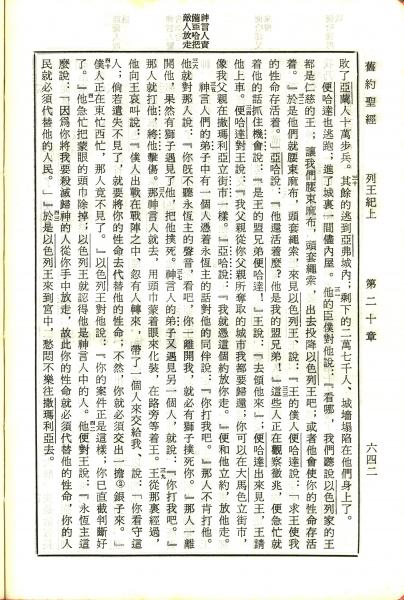 舊約聖經　列王紀上　第二十章　六四二
神言人責
備亞哈把
敵人放走
敗了亞蘭人十萬步兵。其餘的逃到亞弗城內,剩下的二萬七千人、城墻塌陷在他們身上了。
便哈達也逃跑;進了城裏一間儘內屋。他的臣僕對他說:『看哪,我們聽說以色列家的王
都是仁慈的王;讓我們腰束麻布,頭套繩索,出去投降以色列王吧;或者他會使你的性命存活
着。』於是他們就腰束麻布,頭套繩索,來見以色列王、說:『王的僕人便哈達說:「求王使我
的性命存活着。」亞哈說:『他還活着麼?他是我的盟兄弟!』這些人正在觀察徵兆,便急忙就
着他的話抓住機會說:『是王的盟兄弟便哈達!』王說:『去領他來。』便哈達出來見王,王請
他上車。便哈達對王說:『我父親從你父親所奪取的城市我都要歸還;你可以在大馬色立街市,
像我父親在撒瑪利亞立街市一樣。』亞哈說:『我就憑這個約放你走。』便和他立約,放他走。
神言人們的弟子中有一個人憑着永恆主的話對他的同伴說:『你打我吧。』那人不肯打他。
他就對那人說:『你旣不聽永恆主的聲音,看吧,你一離開我,就必有獅子撲死你。』那人一離
開他,果然有獅子遇見了他,把他撲死。神言人的弟子又遇見另一個人,就說:『你打我吧。』
那人就打他,將他擊傷。那神言人就去,用頭巾蒙着眼來化裝,在路旁等着王。王從那裏經過,
他向王哀叫說:『僕人出戰在戰陣之中,忽有人轉來,帶了一個人來交給我,說:「你看守這
人;倘若遺失不見了,就要將你的性命去代替他的性命;不然,你就必須交出一擔銀子來。」
僕人正在東忙西忙,那人竟不見了。』以色列王對他說:『你的案件正是這樣;你已直截判斷好
了。』他急忙把蒙眼的頭巾除掉;以色列王就認得他是神言人中的人。他便對王說:『永恆主這
麼說:「因爲你將我要殺滅歸神的人從你手中放走,故此你的性命就必須代替他的性命,你的人
民就必須代替他的人民。」』於是以色列王來到宮中,愁悶不樂往撒瑪利亞去。